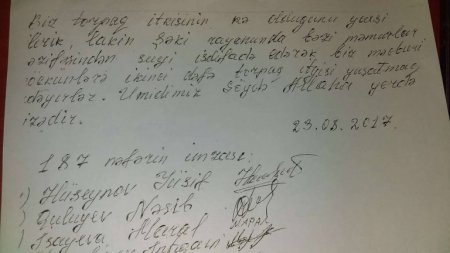 Biz torpaq itkisinin nə olduğunu yaxşı
bilirik, lakin Şəki rayonunda bəzi məmurlar
vəzifəsindən suyi istifadə edərək biz məcburi
köçkünlərə ikinci dəfə torpaq itgisi yaşatmaq
istəyirlər. Ümidimiz Göydə Allaha yerdə
sizədir.
23.08.2017.
187 nəfərin imzası:
1) Hüseynov Yusif
) Quluyev Nəsib
) İsayeva Maral MARAL